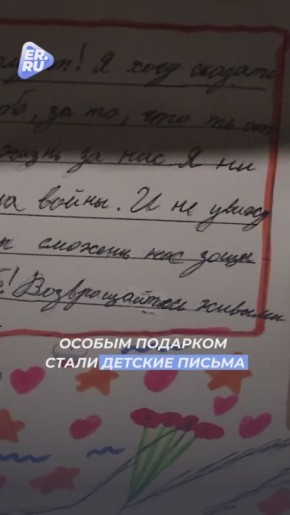 ER.
RU
! Я хочу сказать
за то, что ты от
жизнь за нас Я ни
войны. И не увижу
сможешь нас защи
! Возвращайтесь живыми
ОСОБЫМ ПОДАРКОМ
СТАЛИ ДЕТСКИЕ ПИСЬМА